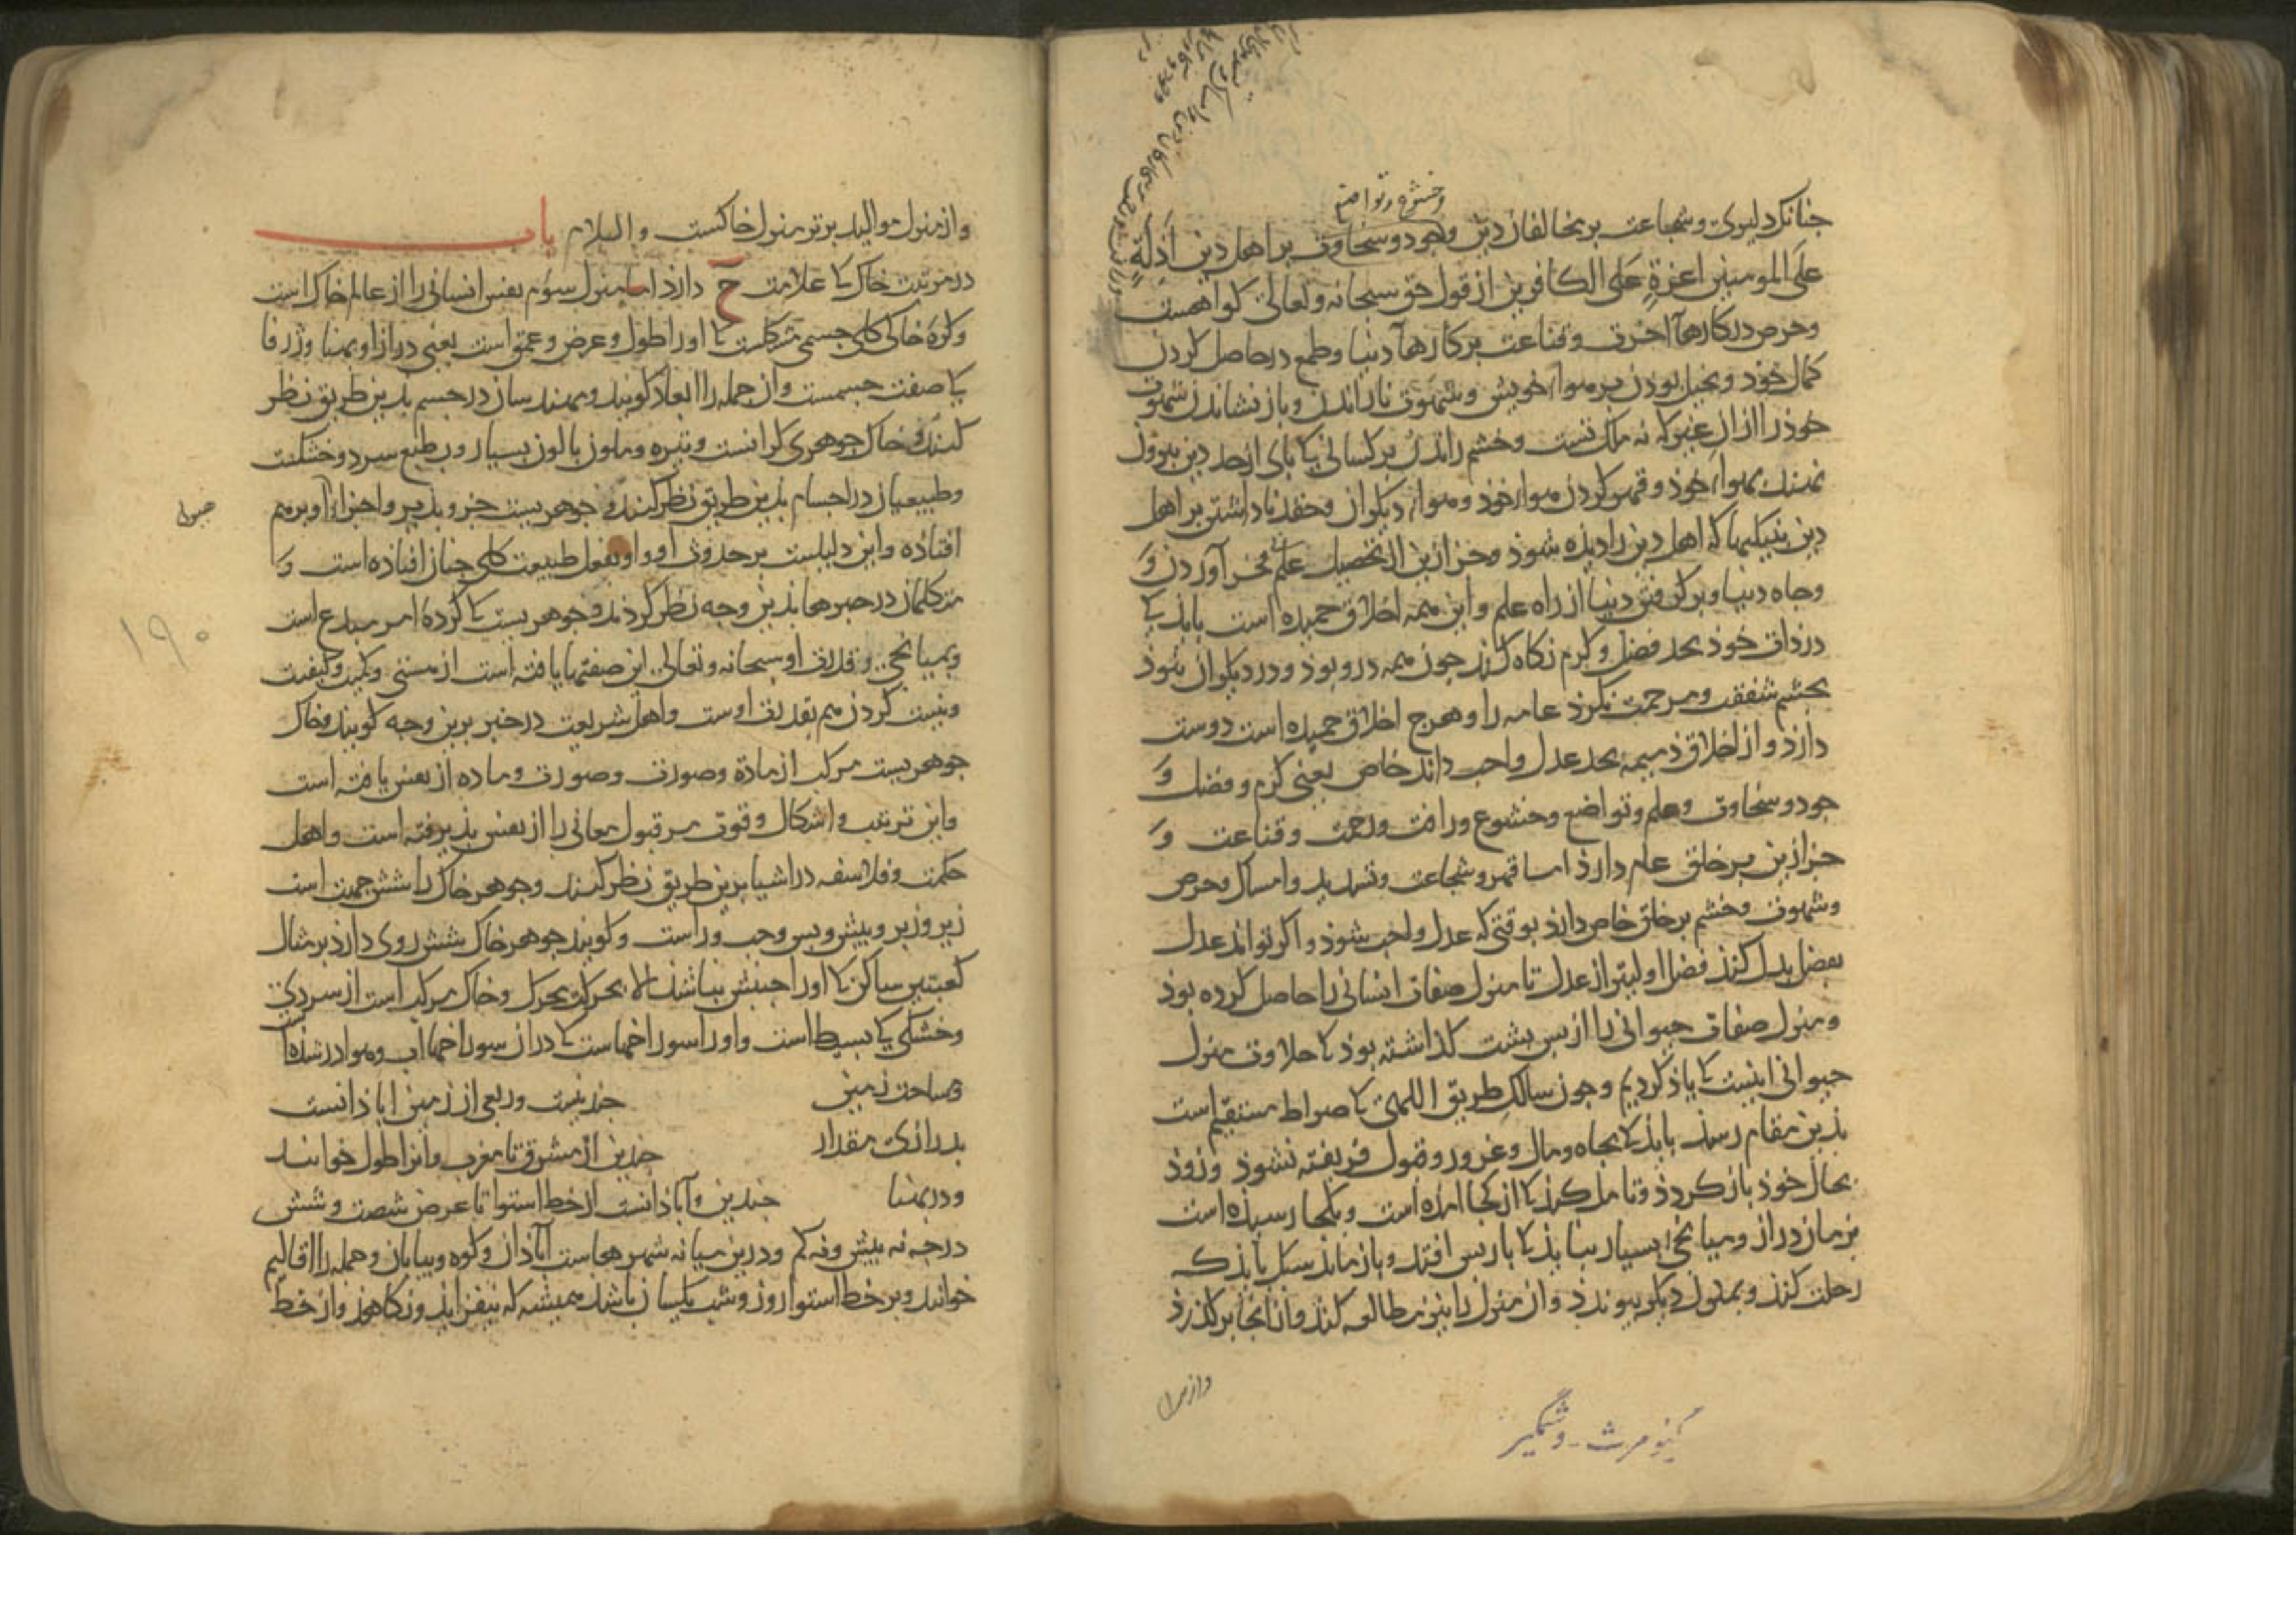 جنانک دلیری و شجاعت بر مخالفان دین وجود و سخاوت بر اهل دین اذلةٍ
و خشوع و تواضع
علی المومنین اعزةٍ علی الکافرین از قول حق سبحانه و تعالی کواهست
و حرص در کارهآ اخرت و قناعت بر کارهآ دنیا و طمع در حاصل کردن
کمال خوذ و بخیل بوذن بر هواء خویش و شهوت ناراندن و باز نشاندن شهوت
خوذ را از ان غیر که نه ملک تست و خشم راندن بر کسانی کا بای از حد دین بیرون
نهند بهواء خوذ و قهر کردن هواء خوذ و هواء دیکران و حقد ناداشتن بر اهل
دین بنیکیها که اهل دین را دیده شوذ و جز ازین از تحصیل علم فخر آوردن و
وجاه دنیا و برکرفتن دنیا از راه علم و این همه اخلاق حمیده است باید کا
در ذات خوذ بحد فضل و کرم نکاه کند جون همه در و بوذ و در دیکران شوذ
بجشم شفقت و مرحمت نکرذ عامه را و هرج اخلاق حمیده است دوست
دارذ و از اخلاق ذمیمه بحد عدل واجب داند خاص یعنی کرم و فضل و
جود و سخاوت و حلم و تواضع و خشوع و رافت و رحمت و قناعت و
جز ازین بر خلق عام دارذ اما قهر و شجاعت و تهدید و امساک و حرص
و شهوت و خشم بر خلق خاص دارذ بوقتی که عدل واجب شوذ و اکر تواند عدل
بفضل بدل کنذ فضل اولیتر از عدل تا منزل صفات انسانی را حاصل کرده بوذ
و منزل صفات حیوانی را از بس بشت کذاشته بوذ کا حلاوت منزل
حیوانی اینست کا یاذ کردیم و جون سالک طریق اللهی کا صراط مستقیم است
بذین مقام رسذ بایذ کا بجاه و مال و غرور و قبول فریفته نشوذ و زوذ
بحال خوذ باز کردذ و تامل کنذ کا از کجا امده است و بکجا رسیده است
بزمان دراز و میانجیء بسیار نبایذ کا باز بس افتد و باز ماند سبک بایذ که
رحلت کنذ و بمنزل دیکر بیوندذ و ان منزل را نیز مطالعه کند و از انجا برکذرذ
وازمنزل
کیومرث - وشمگیر
و از منزل موالید برتر منزل خاکست والسلام باب
در مرتبت خاک کا علامت ح دارذ اما منزل سؤم نفس انسانی را از عالم خاک است
و کرهٔ خاک کلی جسمی شکلست کا او را طول و عرض و عمق است یعنی دراز او بهنا و ژرفا
کا صفت جسمست و ان جمله را ابعاد کویند و مهندسان در جسم بذین طریق نظر
کنند و خاک جوهری کرانست و تیره و ملون بالون بسیار و بطبع سرد و خشکست
و طبیعیان در اجسام بذین طریق نظر کنند و جوهریست جزو بذیر و اجزاء او برهم
جبری
افتاذه و این دلیلست بر حدوث او و او بفعل طبیعت کلی جنان افتاذه است و
متکلمان در جبرها بذین وجه نظر کردند و جوهریست کا کردهٔ امر مبدع است
۱۹۰
و بمیانجی و قدرت او سبحانه و تعالی این صفتها یافته است از هستی و کمیت و کیفیت
و نیست کردن هم بقدرت اوست و اهل شریعت در خبر برین وجه کویند و خاک
جوهریست مرکب از مادّه و صورت و صورت و ماده از نفس یافته است
و این ترتیب و اشکال و قوت مر قبول معانی را از نفس بذیرفته است و اهل
حکمت و فلاسفه در اشیا برین طریق نظر کنند و جوهر خاک را شش جهت است
زیر و زبر و بیش و بس و جب و راست و کویند جوهر خاک شش روی دارذ بر مثال
کعبتین ساکن کا او را جنبش نباشذ الا بحرکت محرک و خاک مرکب است از سردی
و خشکی کا بسیط است و او را سوراخهاست کا در ان سوراخها اب و هوا در شده است
و مساحت زمین جندینست و ربعی از زمین اباذانست
بدرازی مقدار جندین از مشرق تا مغرب و انرا طول خوانند
و در بهنا جندین و آباذانست از خط استوا تا عرض شصت و شش
درجه نه بیش و نه کم و درین میانه شهرهاست آباذان و کوه و بیابان و جمله را اقالیم
خوانند و بر خط استوا روز و شب یکسان باشد همیشه که نیفزایذ و نکاهذ و از خط